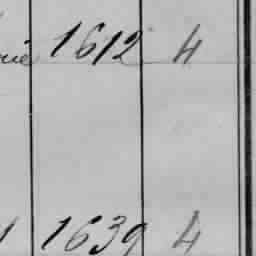 1612 4
1639 4